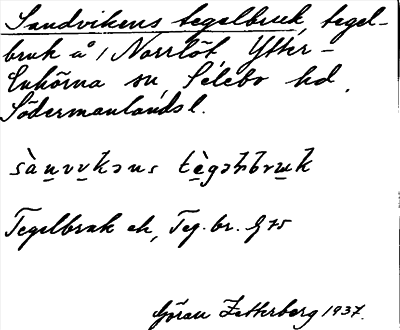 Sandvikens tegelbruk, tegel-
bruk å 1 Norrlöt, Ytter-
Enhörna sn, Selebo hd,
Södermanlands l.
sànvvkəns tègəɫbruk
Tegelbruk ek, Teg. br. G 75
Göran Zetterberg 1937.